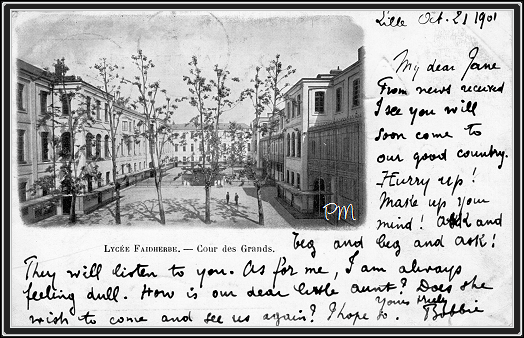 Lille Oct. 21 1901
My dear Jane
From news received
I see you will
soon come to
our good country.
Hurry up!
Make up your
mind! Ask and
beg and beg and ask!
PM
LYCÉE FAIDHERBE. — COUR DES GRANDS.
They will listen to you. As for me, I am always
feeling dull. How is our dear little aunt? Does she
wish to come and see us again? I hope so.
Yours truly
Bobbie